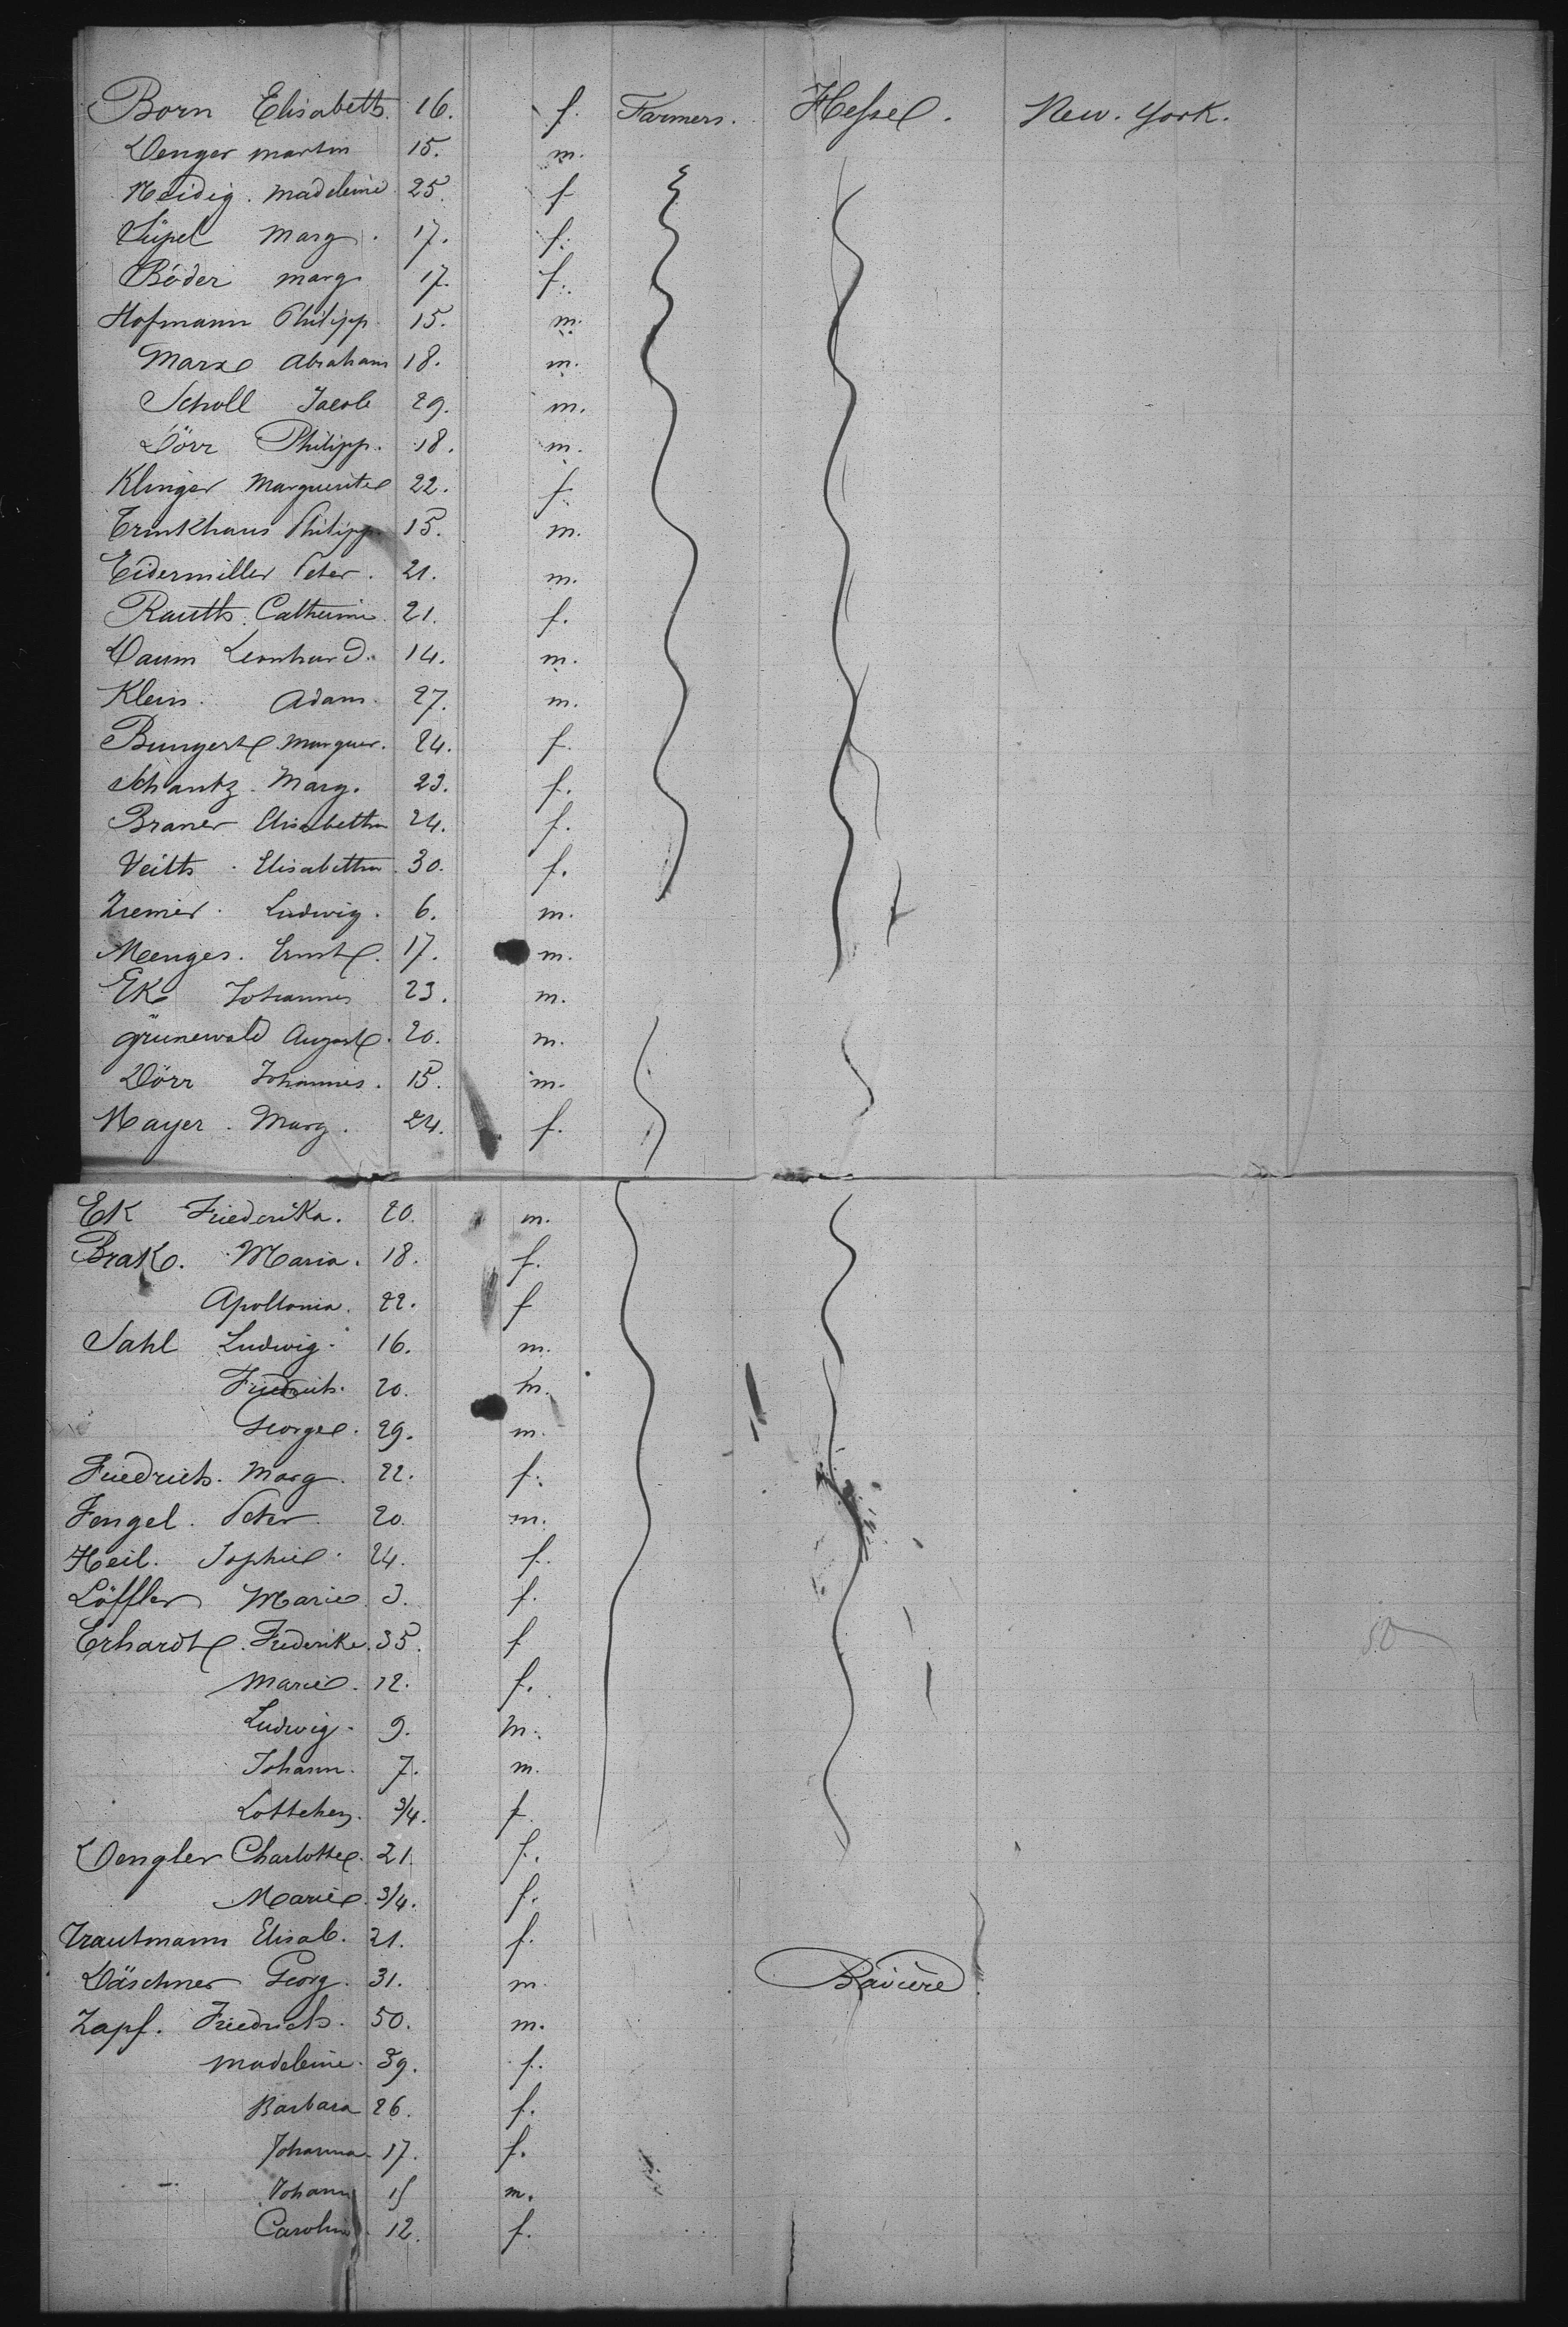 Born Elisabeth. 16. f. Farmers. Hessel. New. York.
Denger martin 15. m.
Neidig. Madeleine 25. f
Süpel Marg. 17. f.
Böder marg 17. f.
Hofmann Philipp. 15. m.
Marx Abraham 18. m.
Scholl Jacob 29. m.
Dörr Philipp. 18. m.
Klinger Marguerite 22. f.
Trinkhaus Philipp. 15. m.
Eidermiller Peter. 21. m.
Rauth. Catherine. 21. f.
Daum Leonhard. 14. m.
Klein. Adam. 27. m.
Bungert Marguer. 24. f.
Schantz. Marg. 23. f.
Braner Elisabetha 24. f.
Veith. Elisabetha. 30. f.
Zremer. Ludwig. 6. m.
Menges. Ernst. 17. m.
Ek Johannes 23. m.
Grünewald August. 20. m.
Dörr Johannes. 15. m.
Mayer. Marg. 24. f.
Ek Friederika. 20. m.
Brak. Maria. 18. f.
Apollonia. 22. f
Sahl Ludwig. 16. m.
Friedrich. 20. m.
George. 29. m.
Friedrich. Marg. 22. f.
Fengel. Peter 20. m.
Heil. Sophie. 24. f.
Löffler Marie 3. f.
Erhardt. Frederike. 35. f 50
Marie. 12. f.
Ludwig. 9. m.
Johann. 7. m.
Lottchen. 3/4. f
Dengler Charlotte. 21. f.
Marie. 3/4. f.
Trautmann Elisab. 21. f.
Däschner Georg. 31. m Bavière.
Zapf. Friedrich. 50. m.
Madeleine. 39. f.
Barbara 26. f.
Johanna 17. f.
Johann 15 m.
Carolin. 12. f.